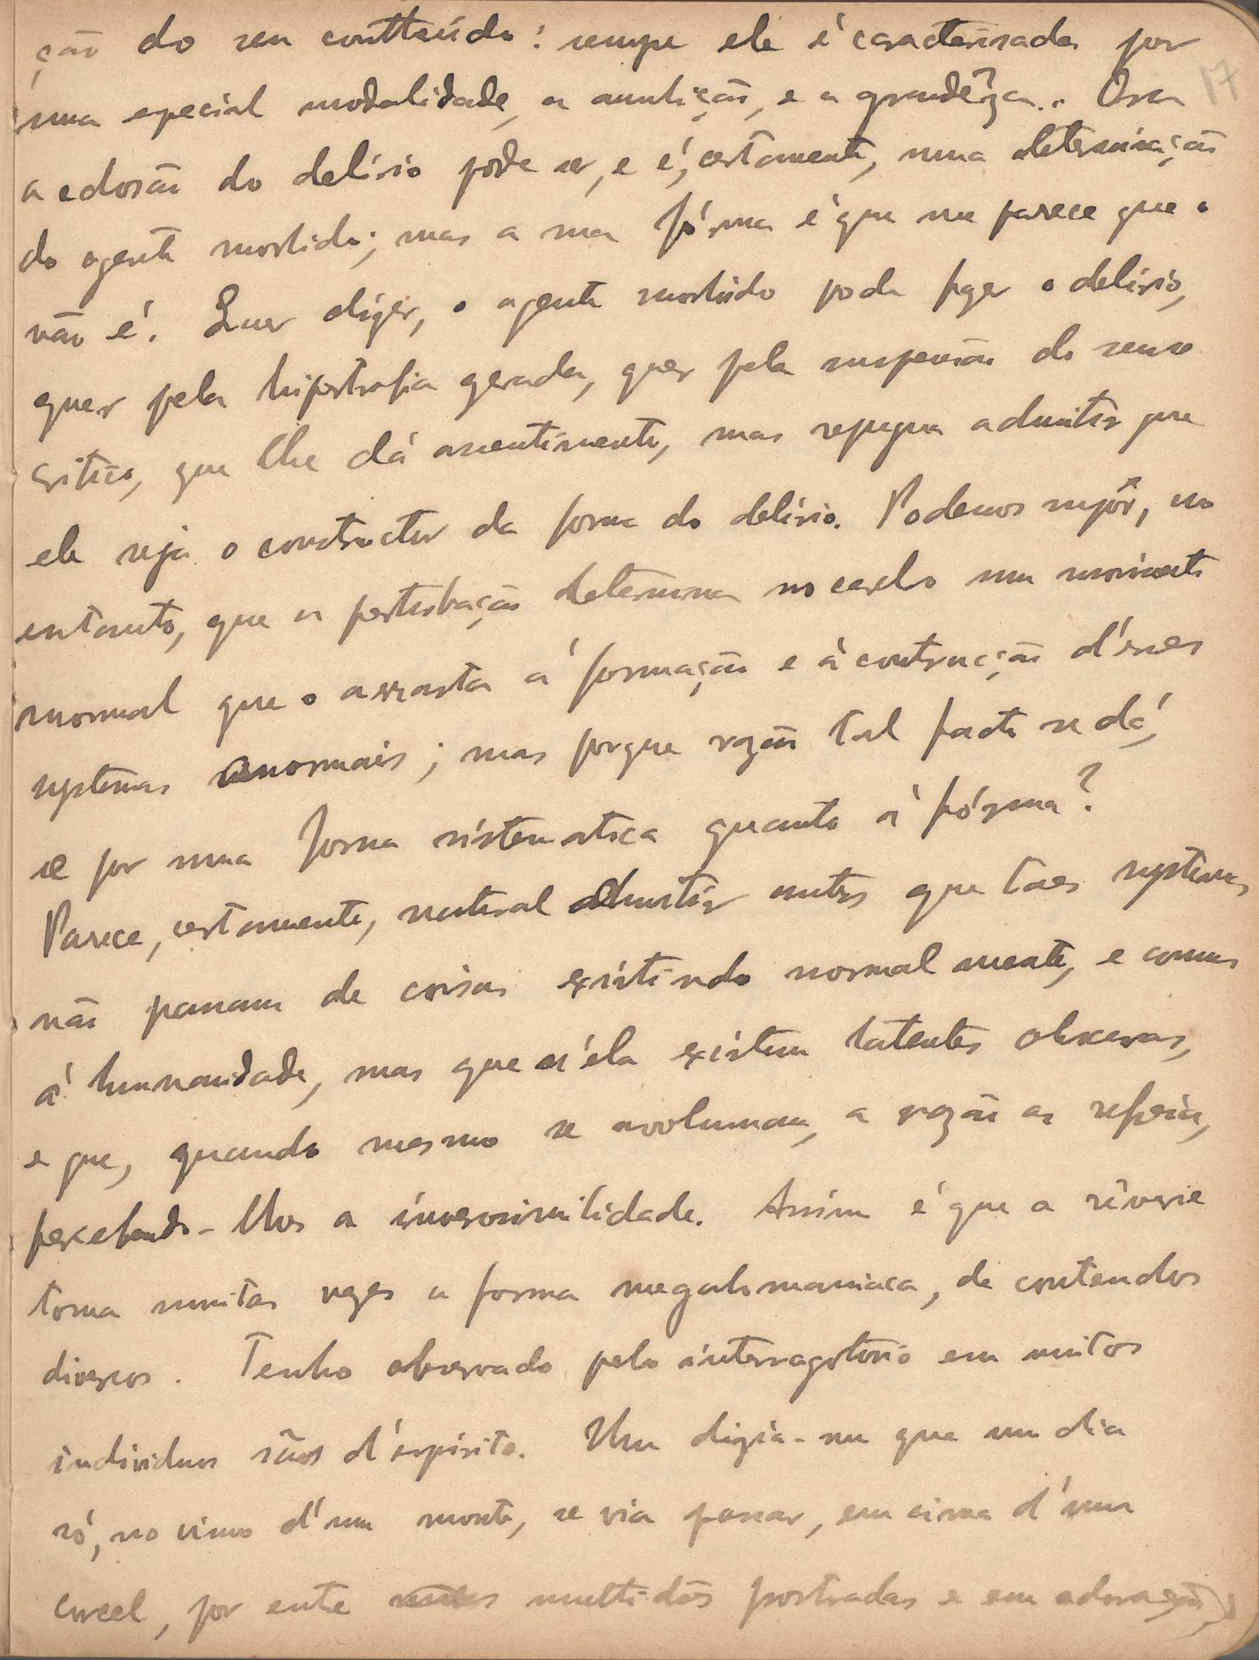 17
ção do seu contteúdo: sempre ele é caracterisado por
uma especial modalidade, a ambição, e a grandêza.. Ora
a eclosão do delirio póde ser, e é, certamente, uma determinação
do agente morbido; mas a sua fórma é que me parece que o
não é. Quer dizer, o agente morbido pode fazer o delirio,
quer pela hipertrofia gerada, quer pela suspensão do senso
critico, que lhe dá assentimento, mas repugna admitir que
ele seja o constructor da forma do delirio. Podemos supôr, no
entanto, que a perturbação determina no cerebro um movimento
anormal que o arrasta á formação e à contrucção d'esses
systemas anormais; mas porque razão tal facto se dá,
se por uma forma sistematica quanto à fórma?
Parece, certamente, natural admitir antes que taes systemas
não passam de coisas existindo normalmente, e comuns
á humanidade, mas que n'ela existem latentes obscuras,
e que, quando mesmo se avolumam, a razão as refreia,
percebendo-lhes a inverosimilidade. Assim é que a rêverie
toma muitas vezes a forma megalomaniaca, de conteudos
diversos. Tenho observado pelo interrogatorio em muitos
individuos sãos d'espirito. Um dizia-me que um dia
só, no cimo d'um monte, se via passar, em cima d'um
corcel, por entre multidões postradas e em adoração,